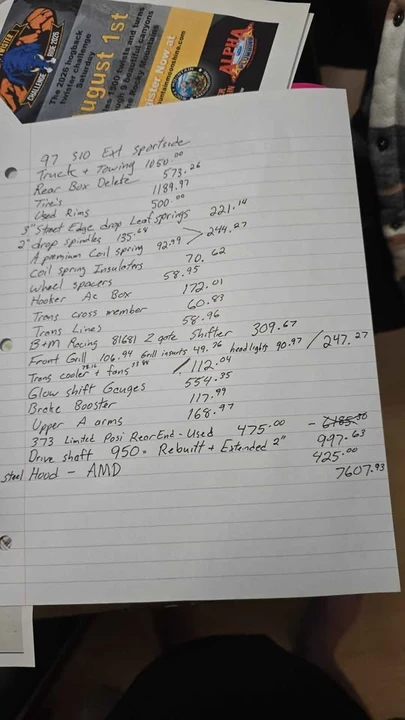 The 2026 humpback
twister challenge
Saturday
August 1st
1500
Beautiful Canyons
Rocky Mountains
Register Now at
ALPHA
97 S10 Ext Sportside
Truck + Towing 1050.00
Rear Box Delete 573.26
Tire's 1189.97
Used Rims 500.00
3" Street Edge drop Leaf springs 221.14
2" drop spindles 135.68 > 244.27
A premium Coil spring 92.99
Coil spring Insulators 70.62
Wheel spacers 58.95
Hooker Ac Box 172.01
Trans cross member 60.83
Trans Lines 58.96
B+M Racing 81681 2 gate Shifter 309.67
Front Grill 106.94 Grill inserts 49.26 headlights 90.97 / 247.27
Trans cooler + fans / 112.04
Glow shift Gauges 554.35
Brake Booster 117.99
Upper A arms 168.97
373 Limited Posi Rear End - Used 475.00 - 6185.30
Drive shaft 950= Rebuilt + Extended 2" 997.63
Steel Hood - AMD 425.00
7607.93